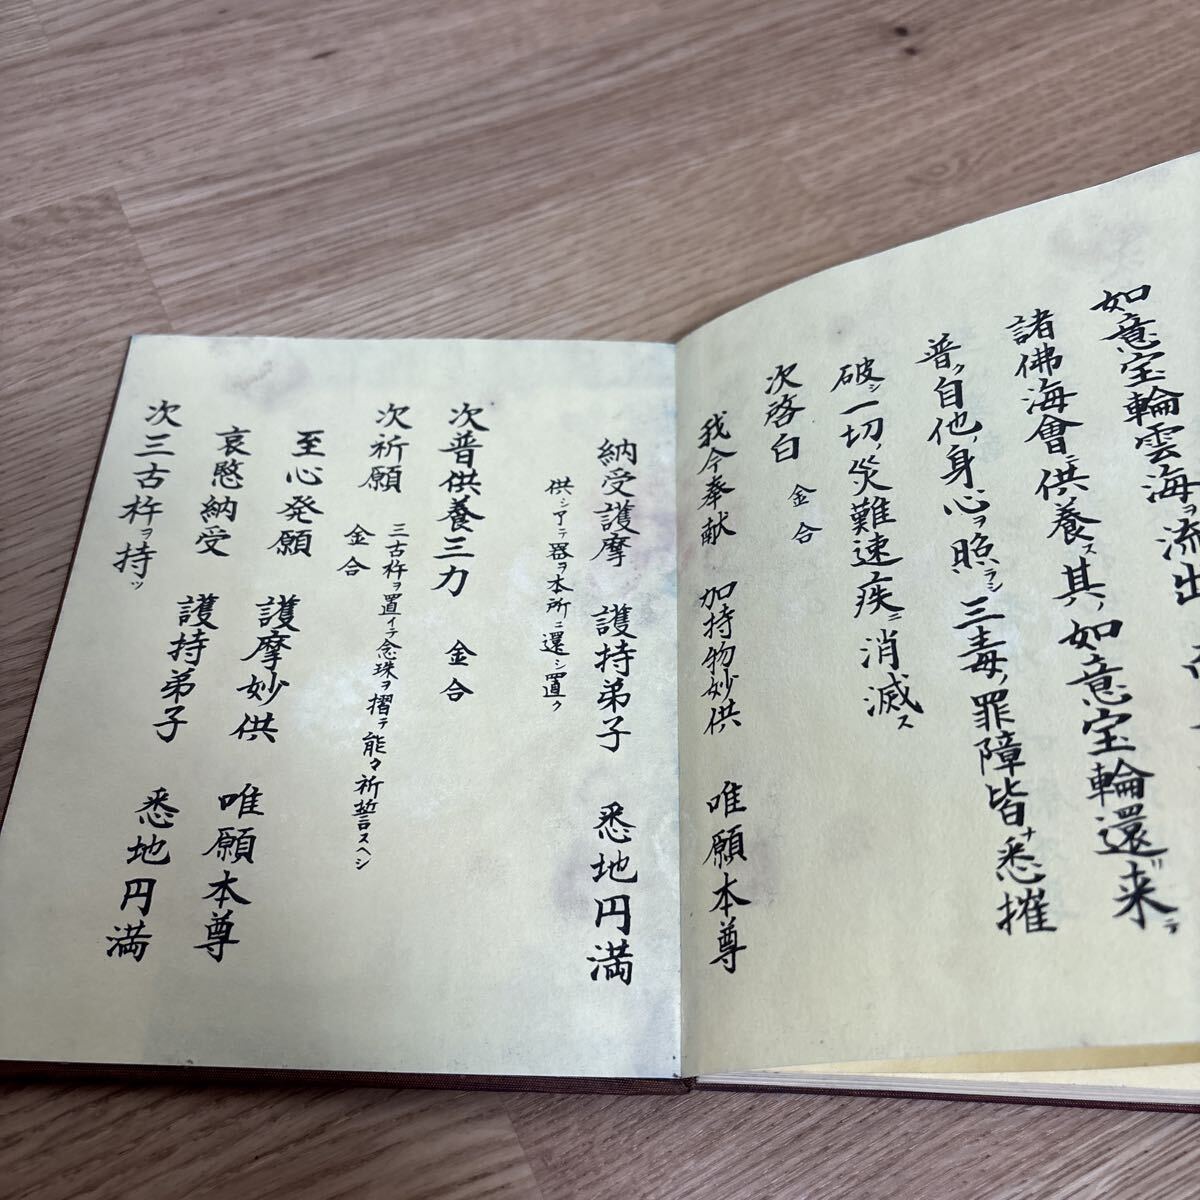 如意宝輪雲海ヲ流出
諸佛海會ニ供養ス其ノ如意宝輪還来テ
普ク自他ノ身心ヲ照ラシ三毒ノ罪障皆ナ悉摧
破シ一切ノ災難速疾ニ消滅ス
次啓白 金合
我今奉献 加持物妙供 唯願本尊
納受護摩 護持弟子 悉地円満
供シ了テ器ヲ本所ニ還シ置ク
次普供養三力 金合
次祈願 三古杵ヲ置イテ念珠ヲ摺テ能々祈誓スヘシ
金合
至心発願 護摩妙供 唯願本尊
哀愍納受 護持弟子 悉地円満
次三古杵ヲ持ツ